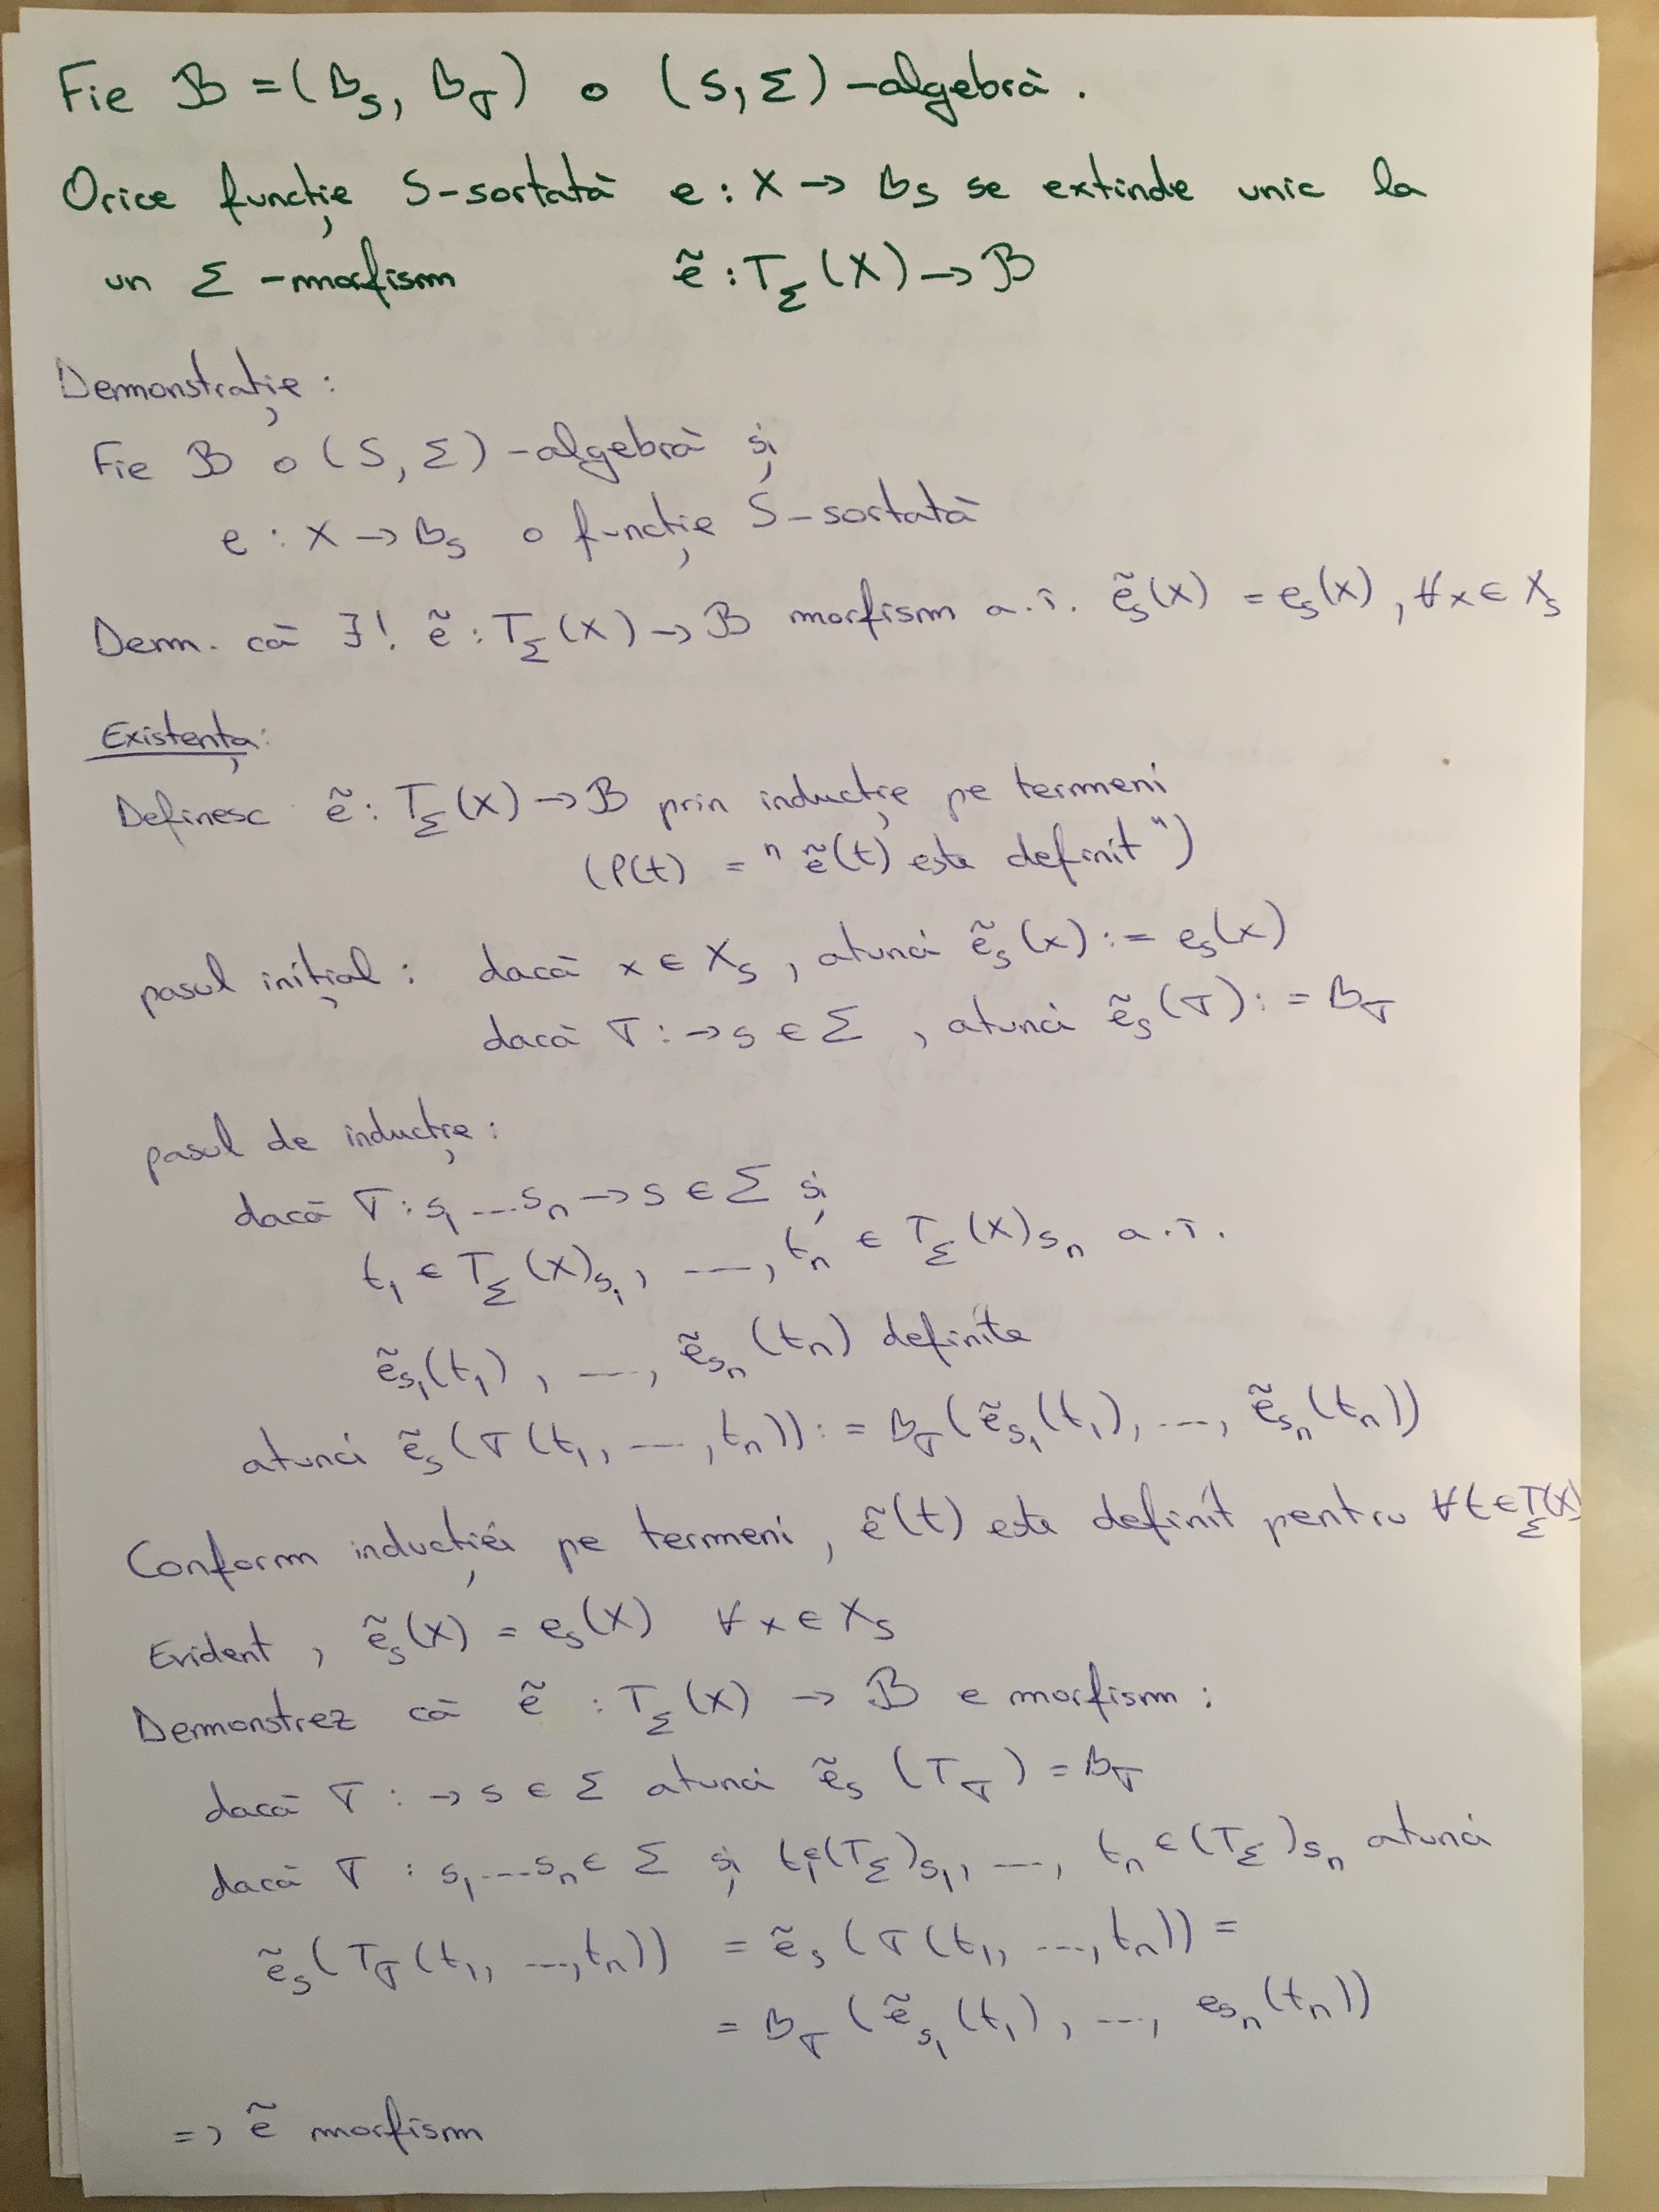 Fie ℬ = (B_S, B_σ) o (S, Σ) -algebră.
Orice funcție S-sortată e : X → B_S se extinde unic la
un Σ -morfism ẽ : T_Σ(X) → ℬ
Demonstrație :
Fie ℬ o (S, Σ) -algebră și
e : X → B_S o funcție S-sortată
Dem. că ∃! ẽ : T_Σ(X) → ℬ morfism a.î. ẽ_s(x) = e_s(x), ∀x ∈ X_s
Existența:
Definesc ẽ : T_Σ(X) → ℬ prin inducție pe termeni
(P(t) = "ẽ(t) este definit")
pasul inițial : dacă x ∈ X_s, atunci ẽ_s(x) := e_s(x)
dacă σ : → s ∈ Σ, atunci ẽ_s(σ) := B_σ
pasul de inducție :
dacă σ : s_1 ... s_n → s ∈ Σ și
t_1 ∈ T_Σ(X)_{s_1}, ..., t_n ∈ T_Σ(X)_{s_n} a.î.
ẽ_{s_1}(t_1), ..., ẽ_{s_n}(t_n) definite
atunci ẽ_s(σ(t_1, ..., t_n)) := B_σ(ẽ_{s_1}(t_1), ..., ẽ_{s_n}(t_n))
Conform inducției pe termeni, ẽ(t) este definit pentru ∀t ∈ T_Σ(X)
Evident, ẽ_s(x) = e_s(x) ∀x ∈ X_s
Demonstrez că ẽ : T_Σ(X) → ℬ e morfism :
dacă σ : → s ∈ Σ atunci ẽ_s(T_σ) = B_σ
dacă σ : s_1 ... s_n ∈ Σ și t_1 ∈ (T_Σ)_{s_1}, ..., t_n ∈ (T_Σ)_{s_n} atunci
ẽ_s(T_σ(t_1, ..., t_n)) = ẽ_s(σ(t_1, ..., t_n)) =
= B_σ(ẽ_{s_1}(t_1), ..., e_{s_n}(t_n))
=> ẽ morfism